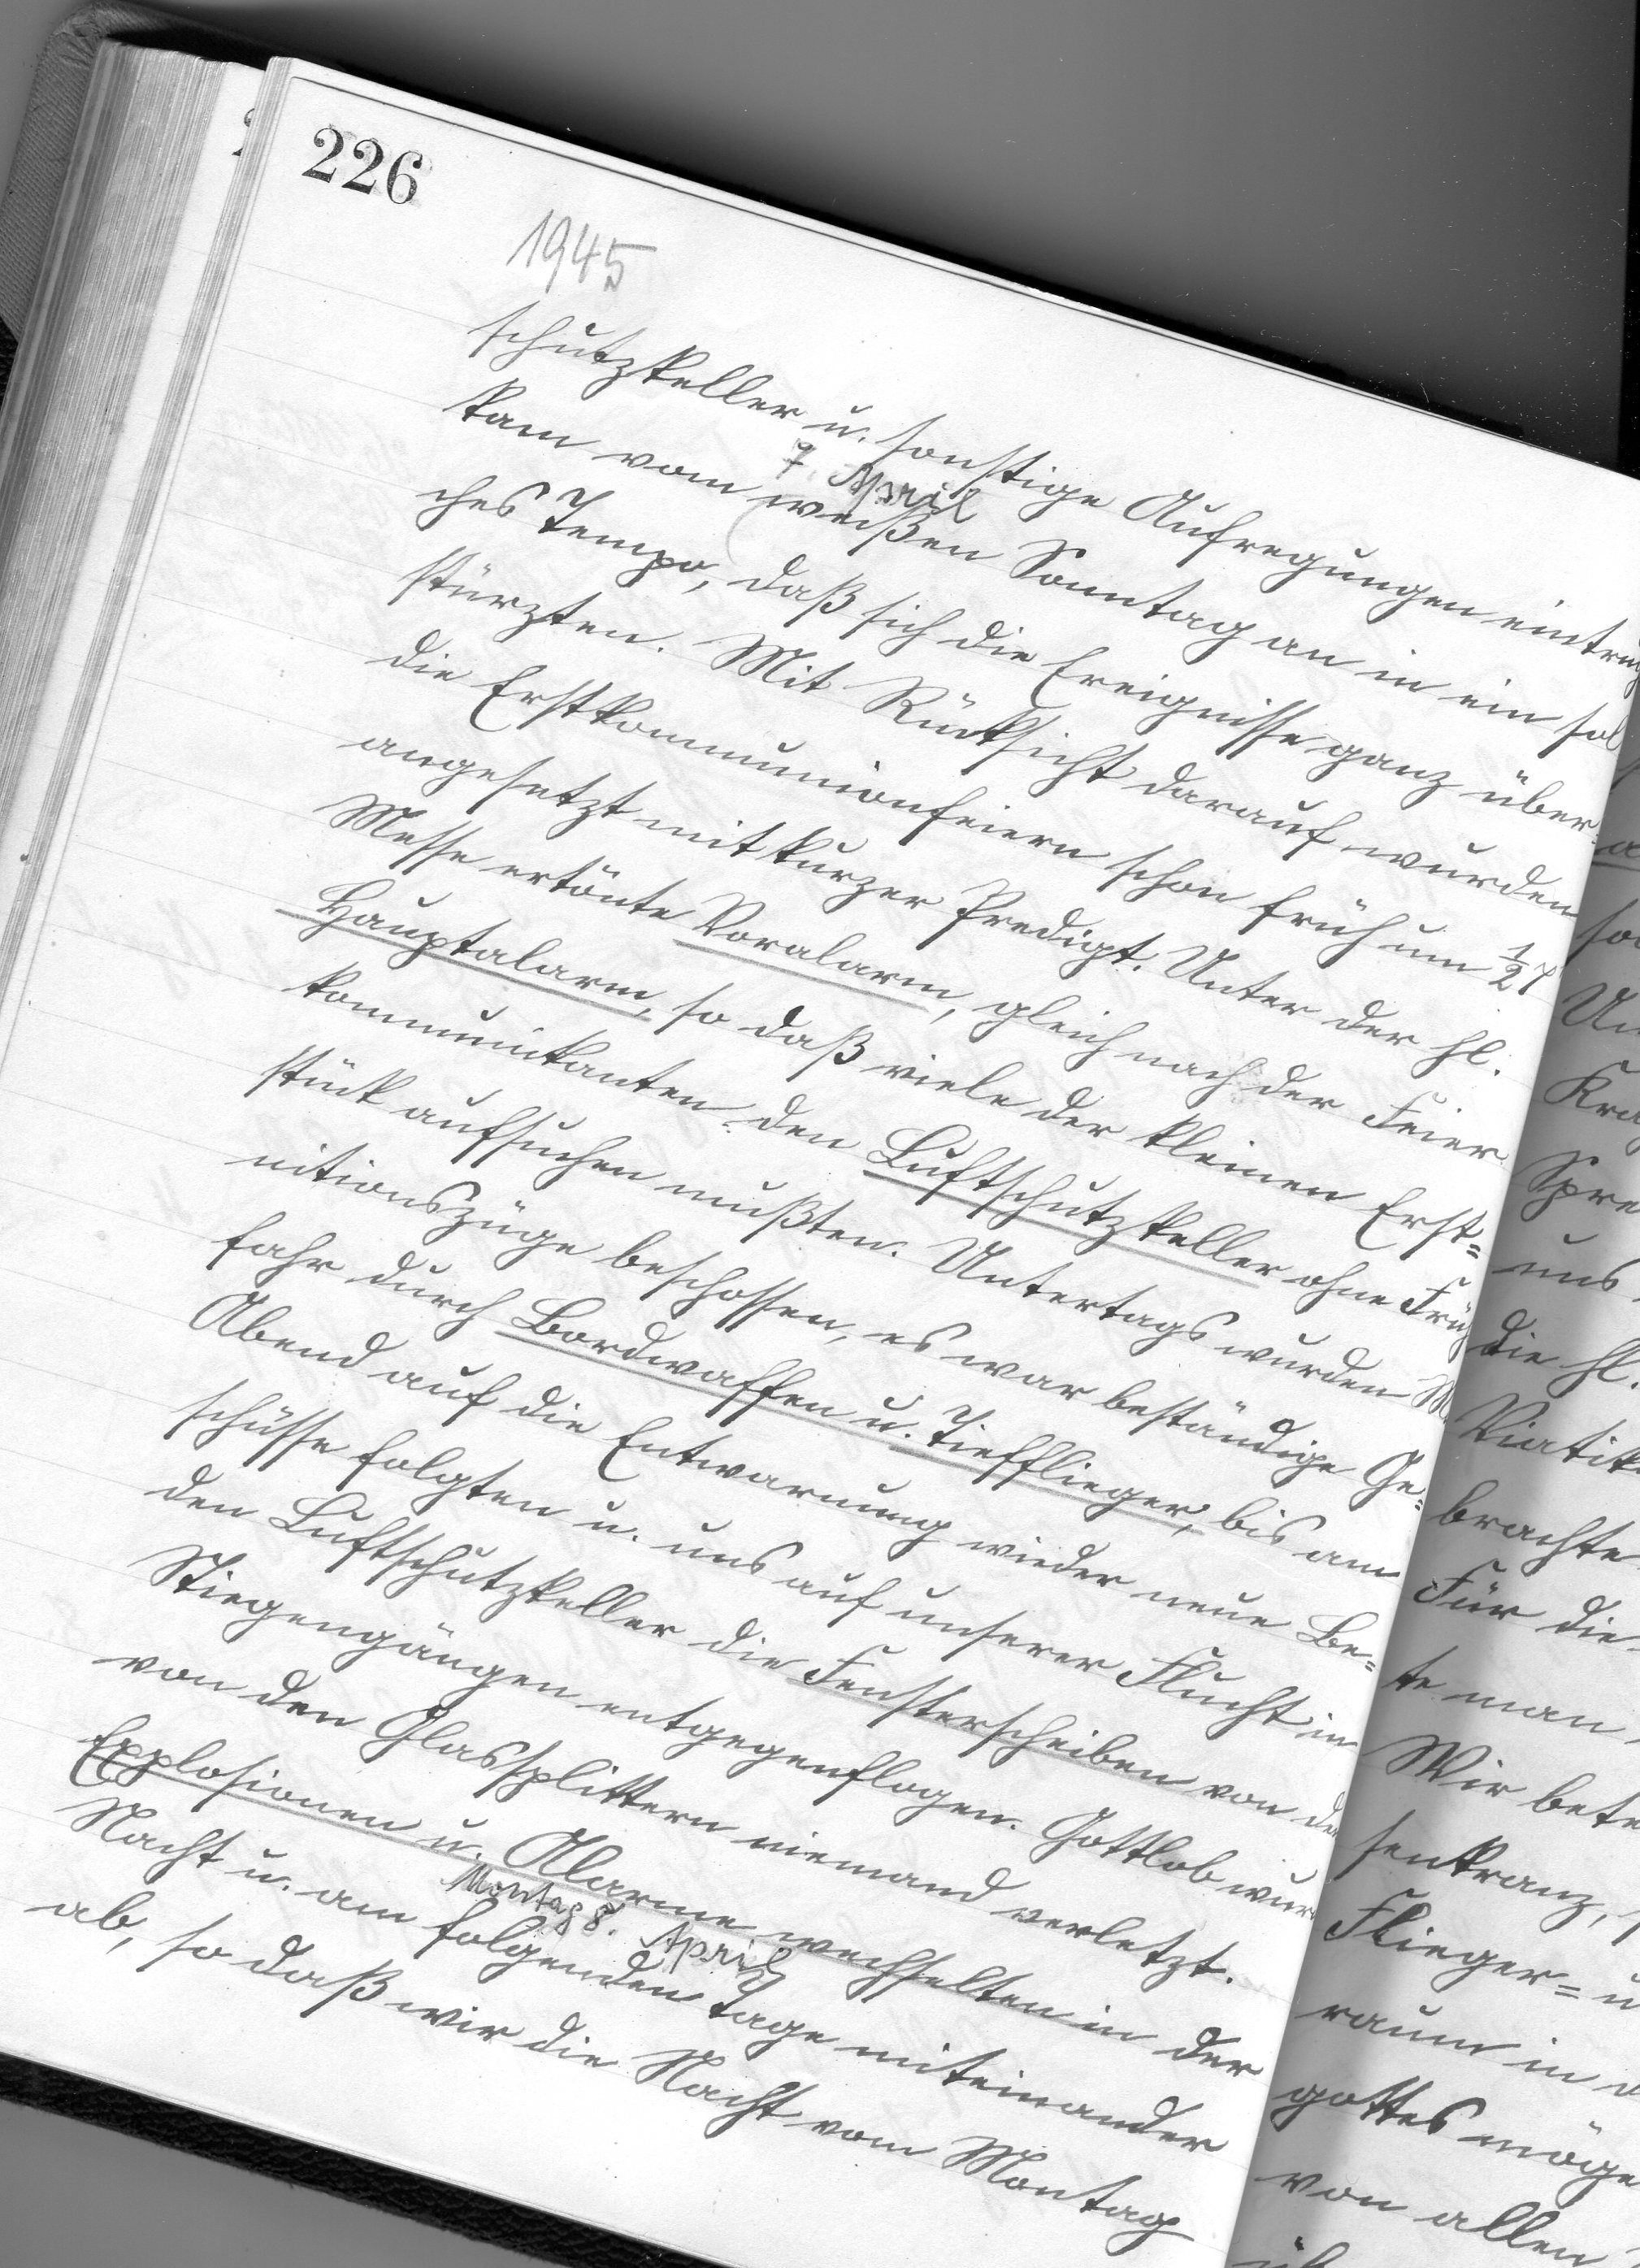 226
1945
schutzkeller u. sonstige Aufregungen eintrug
7. April
kam vom weißen Sonntag an in ein sol
ches Tempo, daß sich die Ereignisse ganz über-
stürzten. Mit Rücksicht darauf wurden
die Erstkommunionfeiern schon früh um ½7
angesetzt mit kurzer Predigt. Unter der hl.
Messe ertönte Voralarm, gleich nach der Feier
Hauptalarm, so daß viele der kleinen Erst=
kommunikanten den Luftschutzkeller ohne Früh
stück aufsuchen mußten. Untertags wurden M
nitionszüge beschossen, es war beständige Ge=
fahr durch Bordwaffen u. Tiefflieger, bis am
Abend auf die Entwarnung wieder neue Be=
schüsse folgten u. uns auf unserer Flucht in
den Luftschutzkeller die Fensterscheiben von den
Stiegengängen entgegenflogen. Gottlob wur
von den Glassplittern niemand verletzt.
Explosionen u. Alarme wechselten in der
Montag 8. April
Nacht u. am folgenden Tage miteinander
ab, so daß wir die Nacht vom Montag
die hl.
brachte
Für die
te man
Wir bete
senkranz,
Flieger= u
raum in
gottes möge
von allen